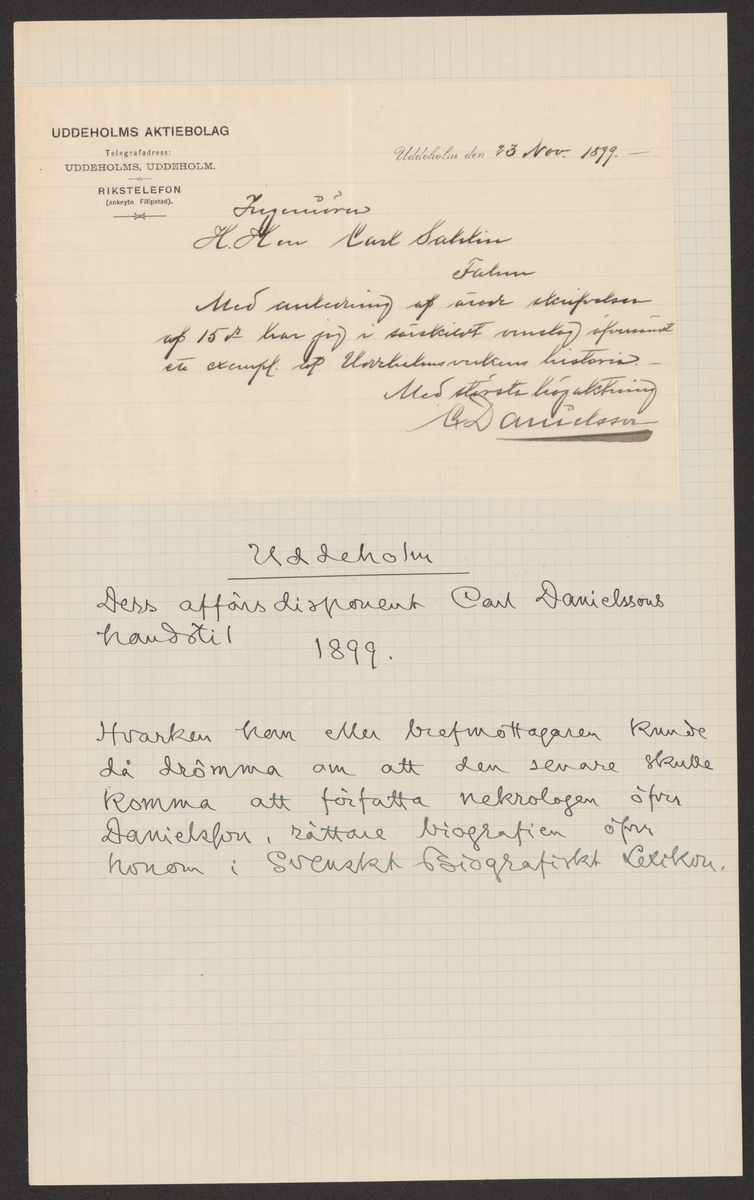 UDDEHOLMS AKTIEBOLAG
Telegrafadress:
UDDEHOLMS, UDDEHOLM.
RIKSTELEFON
(anknytn Filipstad).
Uddeholm den 23 Nov. 1899. —
Ingeniören
H. Herr Carl Sahlin
Falun
Med anledning af ärade skrifvelsen
af 15 ds har jag i särskildt omslag öfversändt
ett exempl. af Uddeholmsverkens historia. —
Med största högaktning
C Danielsson
Uddeholm
Dess affärsdisponent Carl Danielssons
handstil 1899.
Hvarken han eller brefmottagaren kunde
då drömma om att den senare skulle
komma att författa nekrologen öfver
Danielsson, rättare biografien öfver
honom i Svenskt Biografiskt Lexikon.